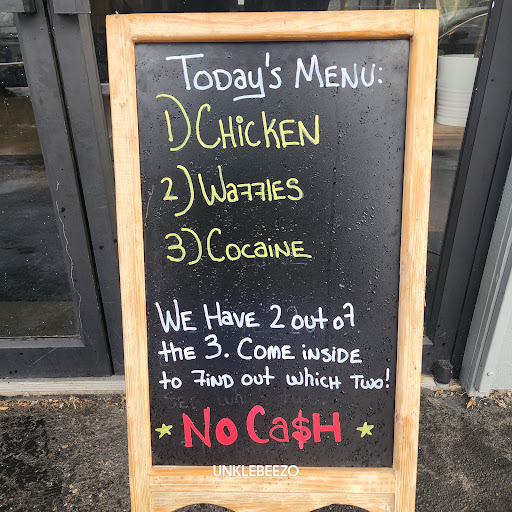 Today's Menu:
1) Chicken
2) Waffles
3) Cocaine
We Have 2 out of
the 3. Come inside
to find out which two!
No Ca$h
UNKLEBEEZO